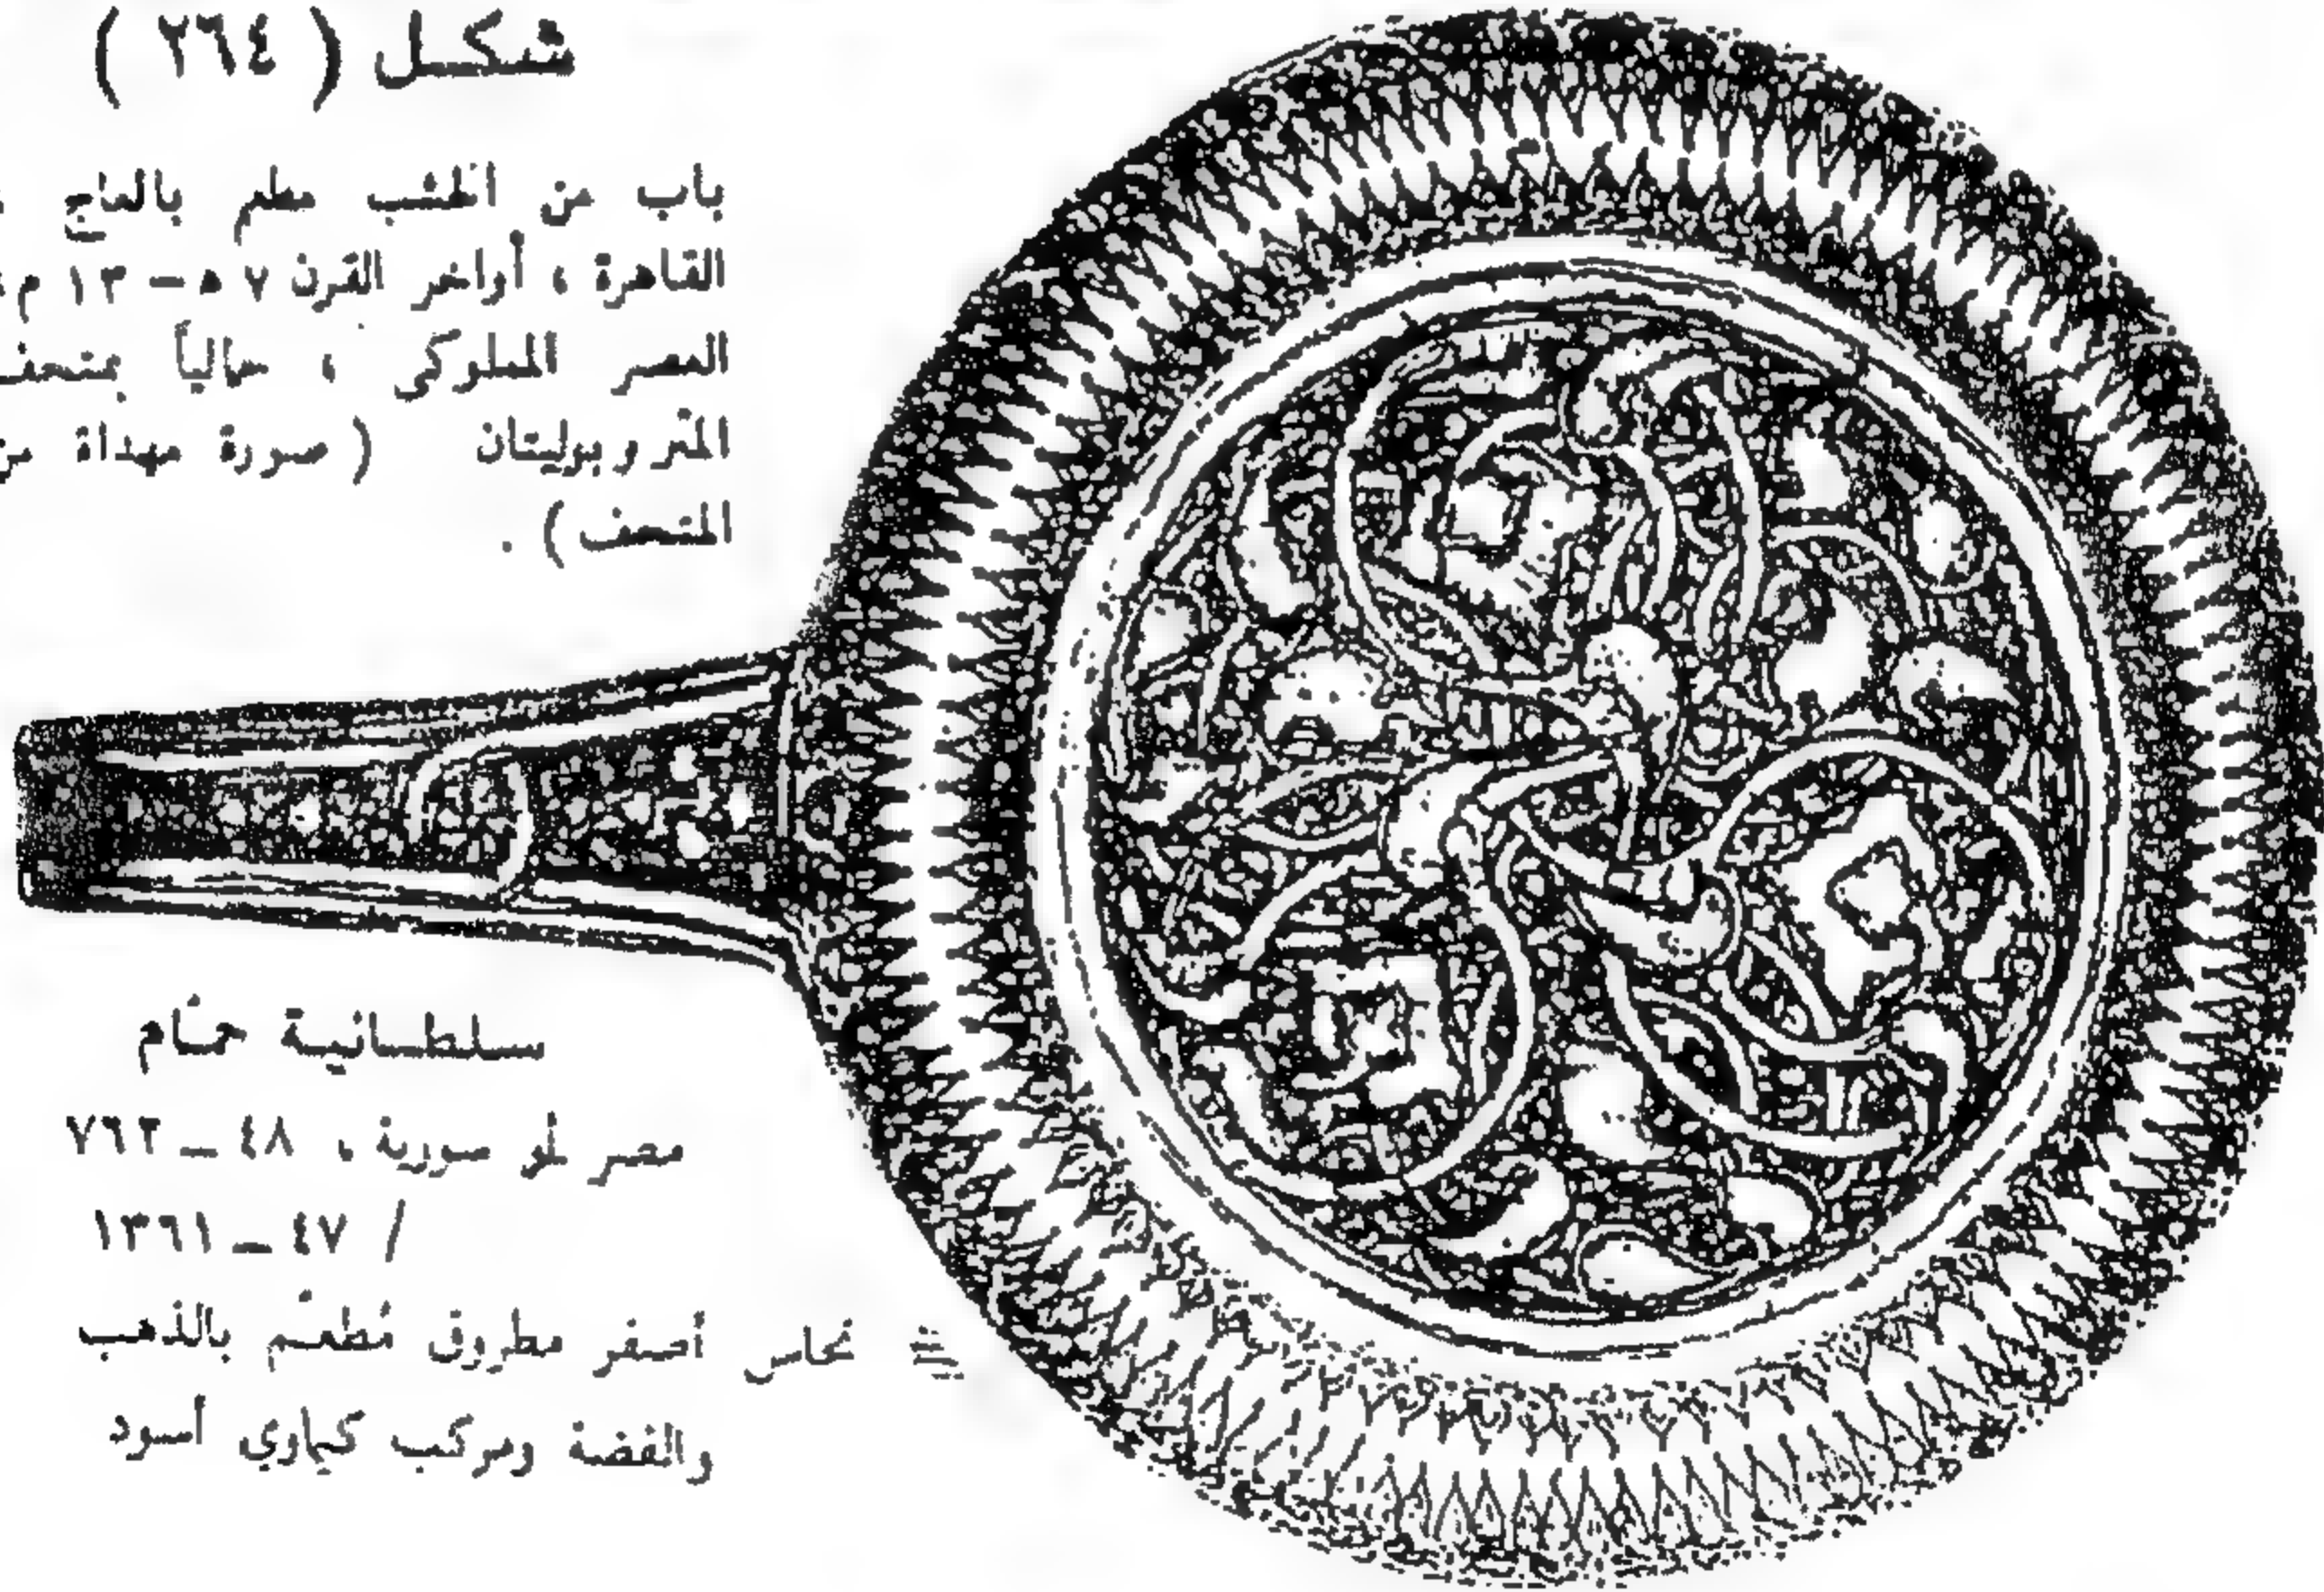 شكل ( ٢٦٤ )
باب من الخشب مطعم بالعاج ،
القاهرة ، أواخر القرن ٧ هـ – ١٣ م ،
العصر المملوكى ، حالياً بمتحف
المتروبوليتان ( صورة مهداة من
المتحف ) .
سلطانية حمّام
مصر أو سورية ، ٤٨ – ٧٦٢
/ ٤٧ – ١٣٦١
نحاس أصفر مطروق مُطعّم بالذهب
والفضة ومركب كيماوي أسود